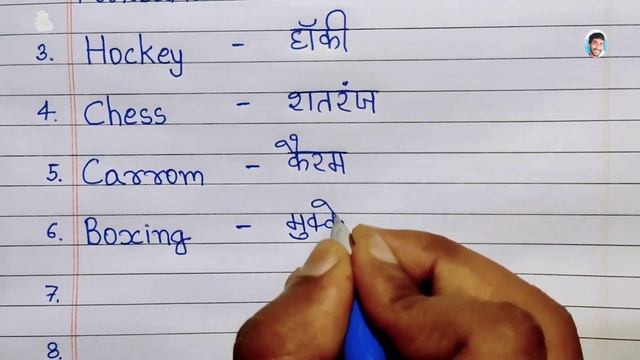 3. Hockey - हॉकी
4. Chess - शतरंज
5. Carrom - कैरम
6. Boxing - मुक्के
7.
8.